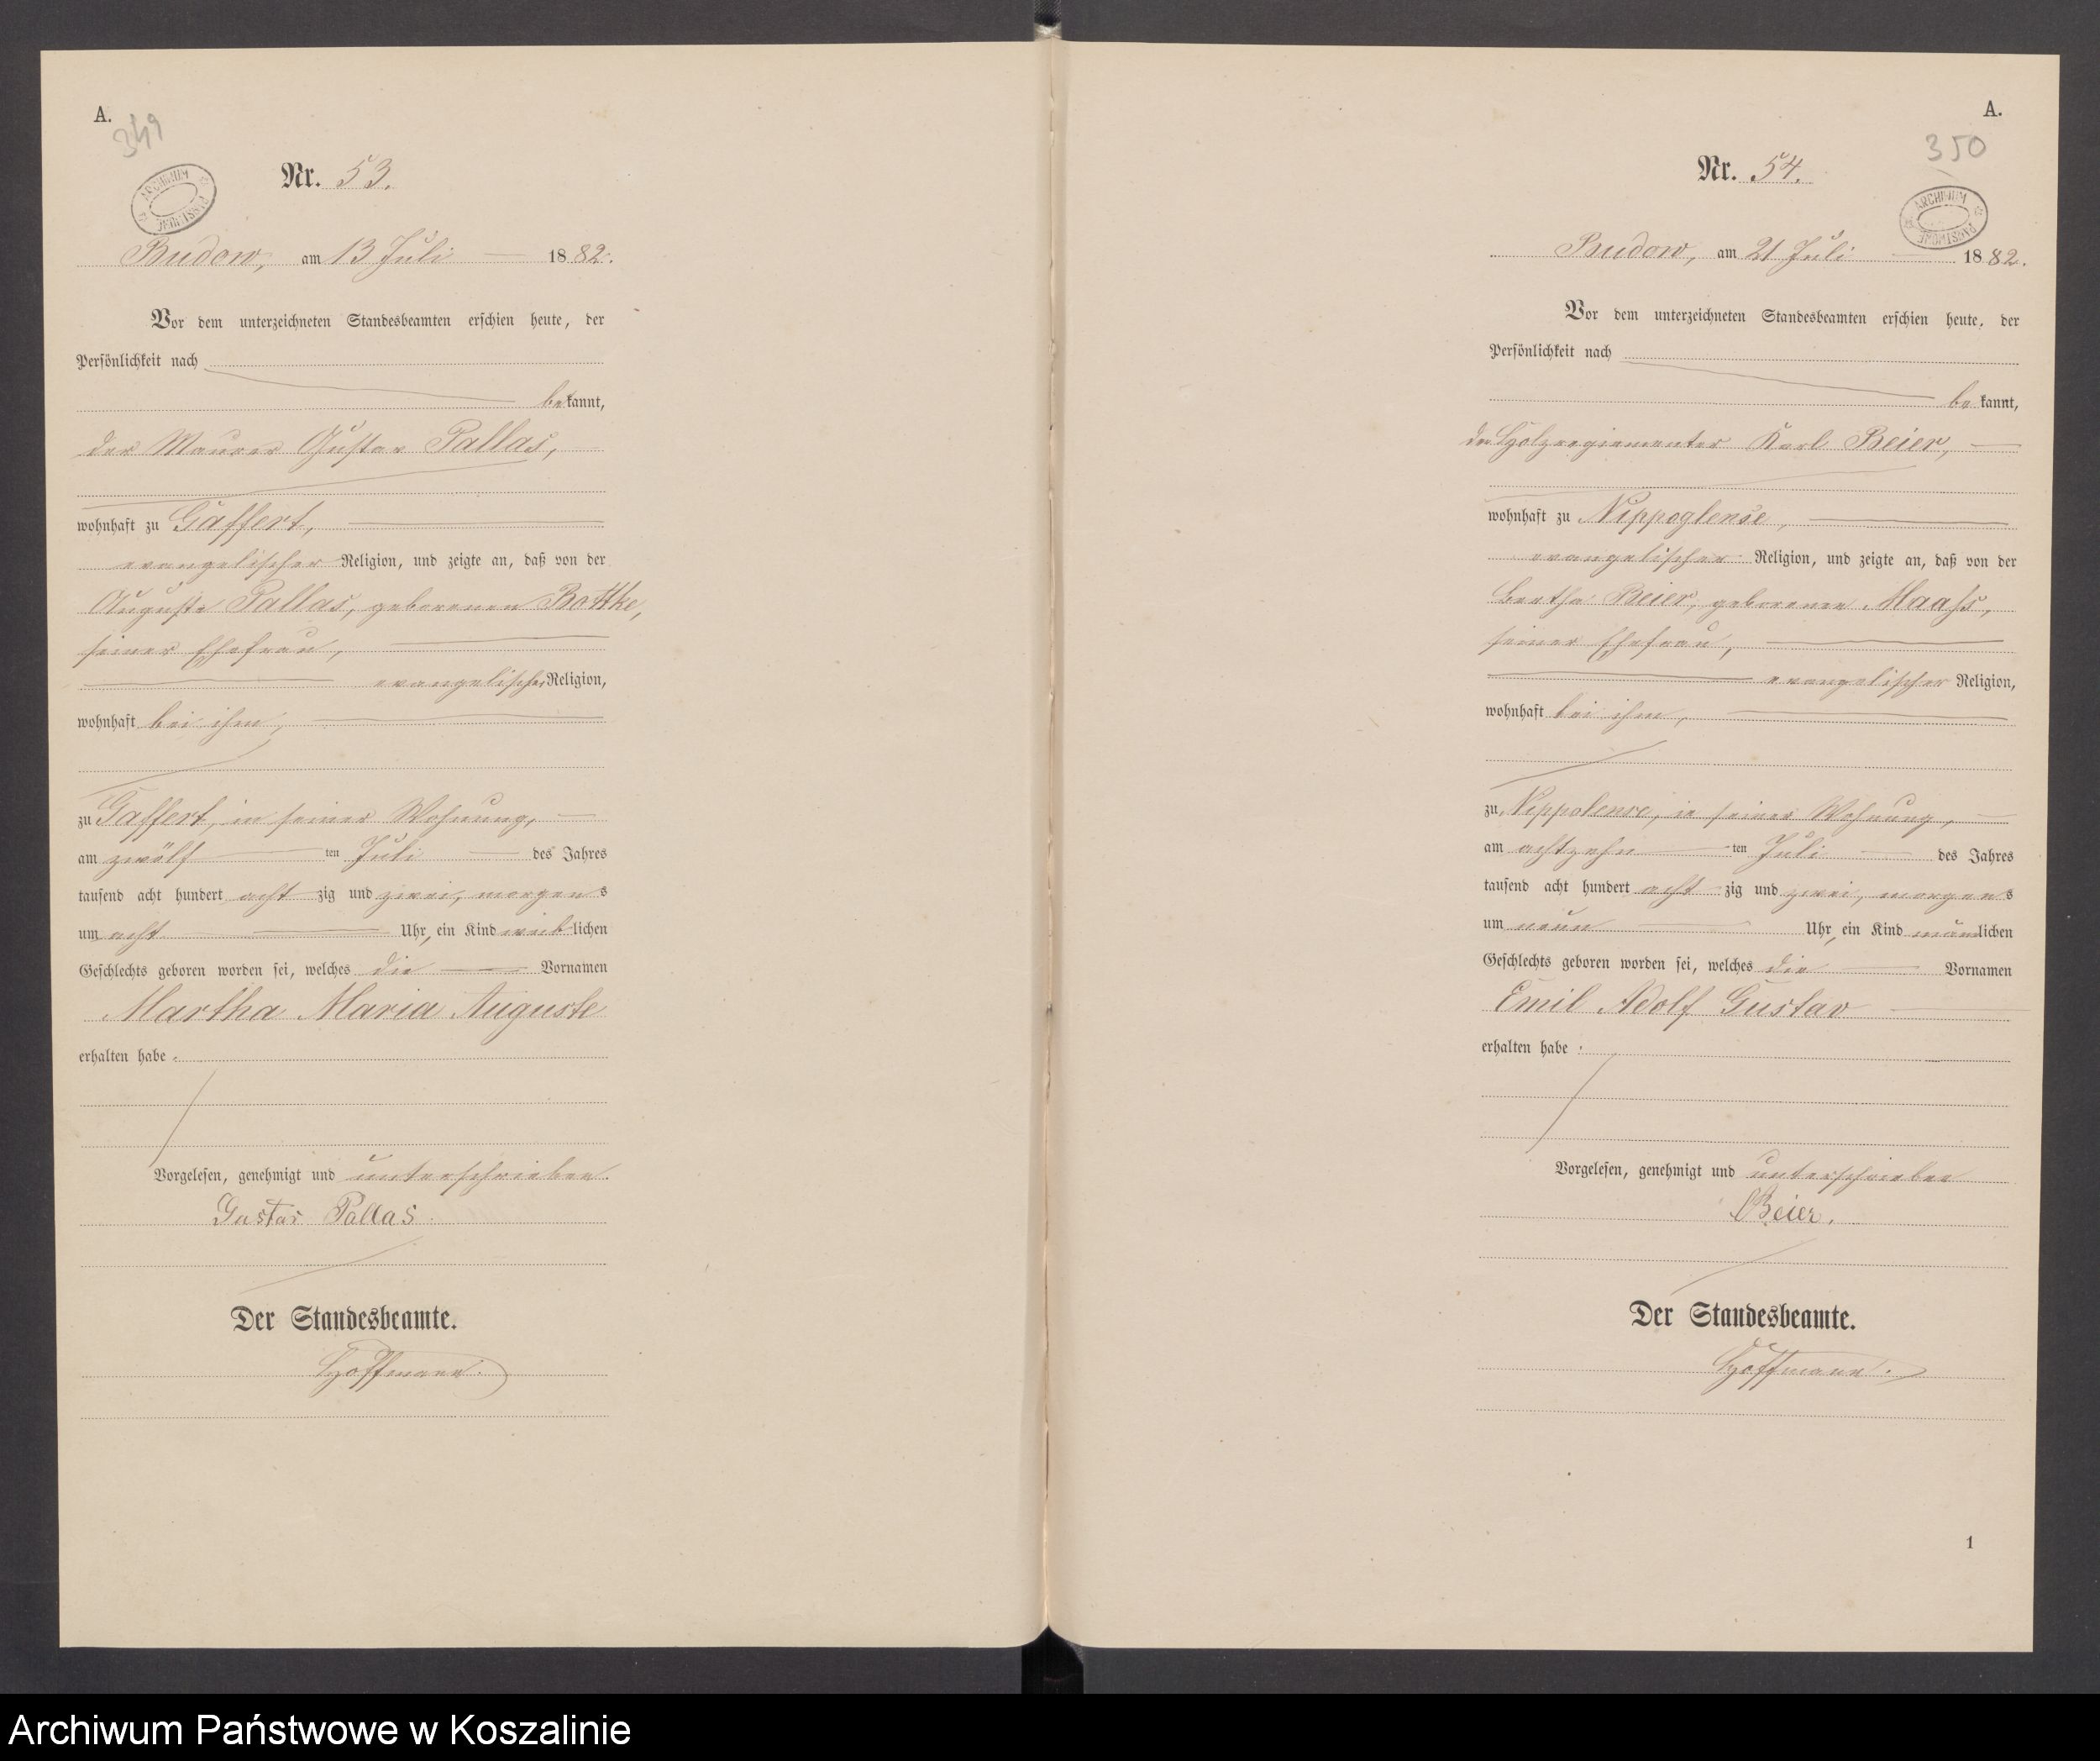 A.
349
ARCHIWUM PAŃSTWOWE
Nr. 53.
Budow, am 13 Juli 1882.
Vor dem unterzeichneten Standesbeamten erschien heute, der
Persönlichkeit nach
bekannt,
der Maurer Gustav Pallas,
wohnhaft zu Gaffert,
evangelischer Religion, und zeigte an, daß von der
Auguste Pallas, geborenen Bottke,
seiner Ehefrau,
evangelischer Religion,
wohnhaft bei ihm,
zu Gaffert, in seiner Wohnung,
am zwölf ten Juli des Jahres
tausend acht hundert acht zig und zwei, morgens
um acht Uhr, ein Kind weiblichen
Geschlechts geboren worden sei, welches die Vornamen
Martha Maria Auguste
erhalten habe.
Vorgelesen, genehmigt und unterschrieben.
Gustav Pallas
Der Standesbeamte.
Hoffmann.
A.
350
ARCHIWUM PAŃSTWOWE
Nr. 54.
Budow, am 21 Juli 1882.
Vor dem unterzeichneten Standesbeamten erschien heute, der
Persönlichkeit nach
bekannt,
der Holzregimenter Karl Beier,
wohnhaft zu Nippoglense,
evangelischer Religion, und zeigte an, daß von der
Bertha Beier, geborenen Maaß,
seiner Ehefrau,
evangelischer Religion,
wohnhaft bei ihm,
zu Nippolense, in seiner Wohnung,
am achtzehn ten Juli des Jahres
tausend acht hundert acht zig und zwei, morgens
um neun Uhr, ein Kind männlichen
Geschlechts geboren worden sei, welches die Vornamen
Emil Adolf Gustav
erhalten habe.
Vorgelesen, genehmigt und unterschrieben
Beier.
Der Standesbeamte.
Hoffmann.
1
Archiwum Państwowe w Koszalinie